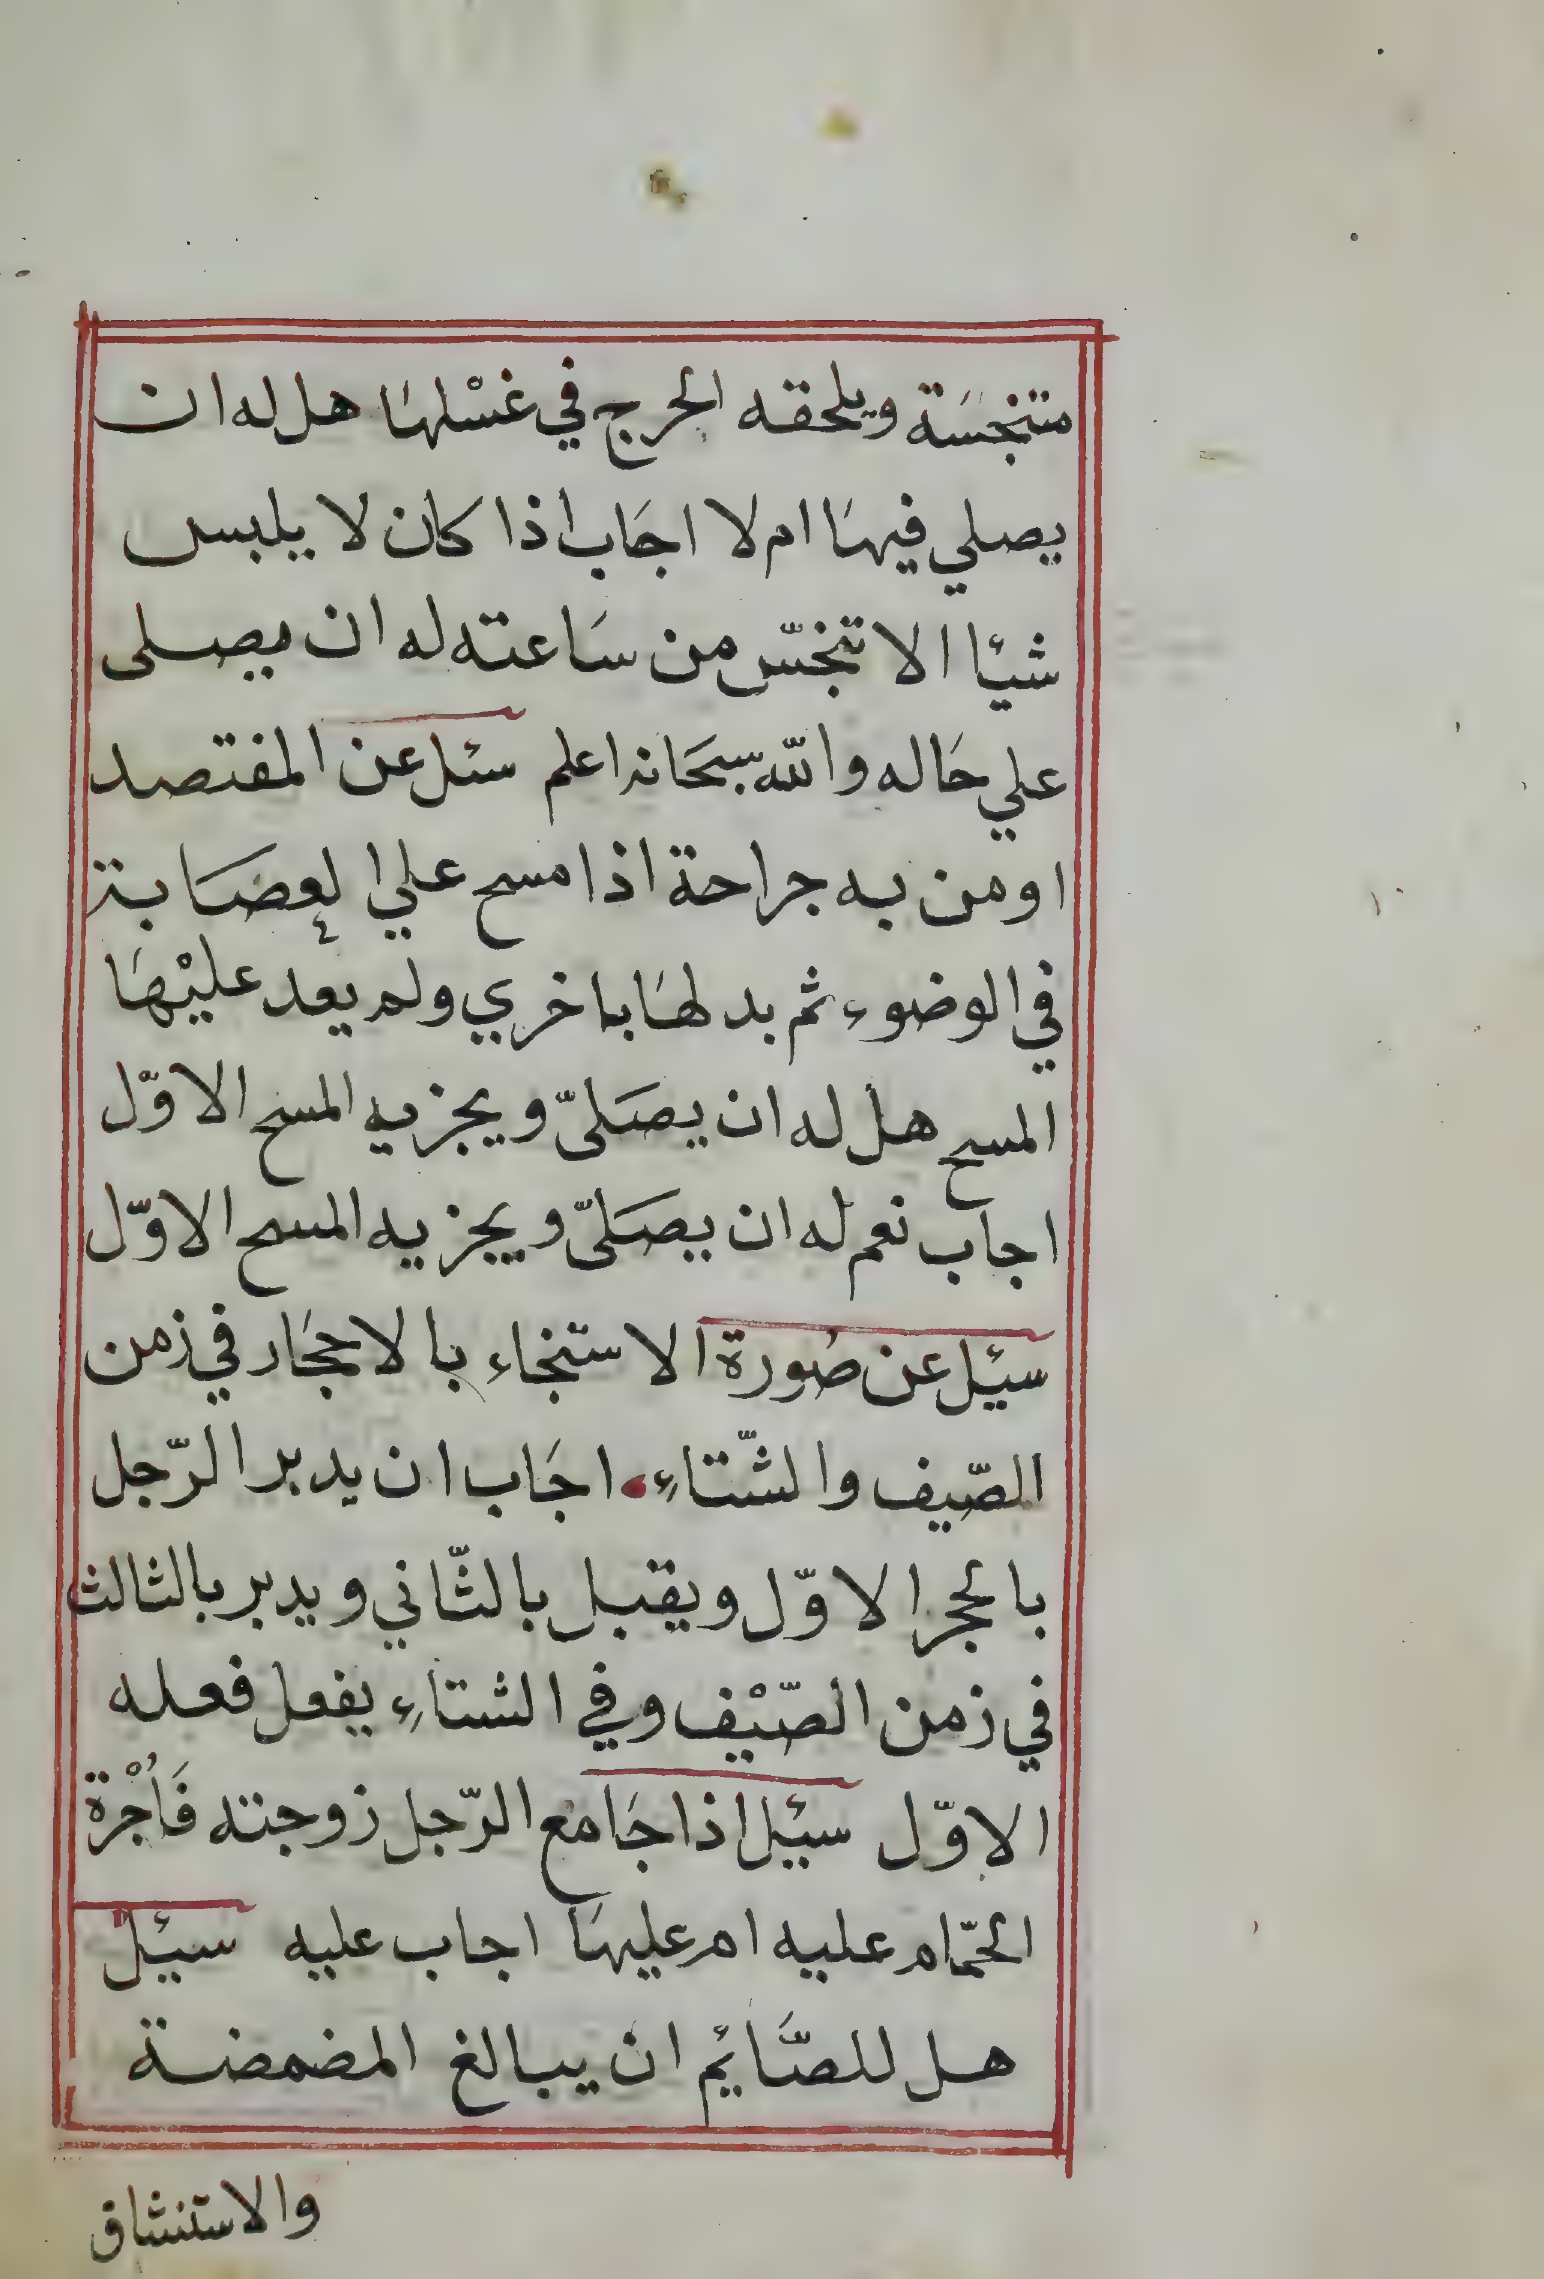 متنجسَة ويلحقه الحرج في غسْلهَا هل له ان
يصلي فيهَا ام لا اجَاب اذا كان لا يلبس
شيئا الا تنجّس من سَاعته له ان يصلى
علي حَاله والله سبحَانه اعلم سئل عن المفتصد
او من به جراحة اذا مسح علي العصَابة
في الوضوء ثم بدلهَا باخري ولم يعد عليْهَا
المسح هل له ان يصَلىّ ويجزيه المسح الاوّل
اجاب نعم له ان يصَلىّ ويجزيه المسح الاوّل
سئل عن صُورة الاستنجاء بالاحجَار في زمن
الصّيف والشّتاءِ اجَاب ان يدبر الرّجل
بالحجر الاوّل ويقبل بالثّاني ويدبر بالثالث
في زمن الصّيْف وفي الشتاءِ يفعل فعله
الاوّل سئل اذا جَامع الرّجل زوجته فَأُجْرة
الحمّام عليه ام عليهَا اجاب عليه سئل
هل للصَّائم ان يبالغ المضمضة
والاستنشاق